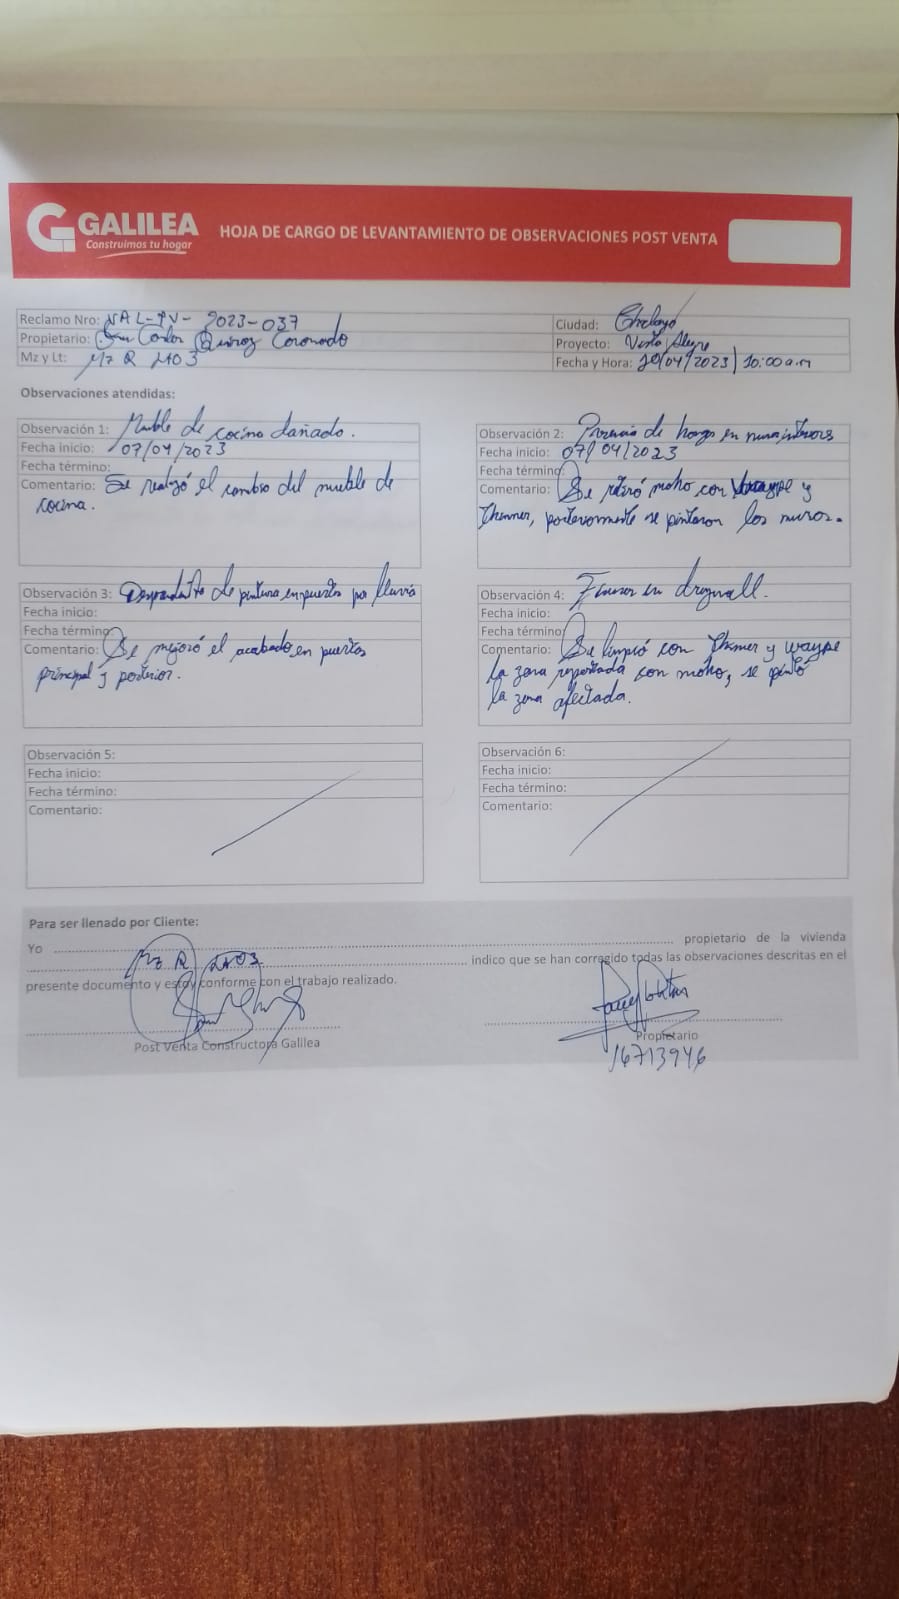 GALILEA
Construimos tu hogar
HOJA DE CARGO DE LEVANTAMIENTO DE OBSERVACIONES POST VENTA
Reclamo Nro: VAL-PV- 2023-037
Ciudad: Chiclayo
Propietario: Carlos Quiroz Coronado
Proyecto: Vista Alegre
Mz y Lt: Mz R
Fecha y Hora: 20/04/2023 10:00 a.m
Observaciones atendidas:
Observación 1: Mueble de cocina dañado.
Fecha inicio: 07/04/2023
Fecha término:
Comentario: Se realizó el cambio del mueble de
cocina.
Observación 2: Presencia de hongo en muros interiores
Fecha inicio: 07/04/2023
Fecha término:
Comentario: Se retiró moho con waype y
Thenner, posteriormente se pintaron los muros.
Observación 3: de pintura en puertas por lluvia
Fecha inicio:
Fecha término:
Comentario: Se mejoró el acabado en puertas
principal y posterior.
Observación 4: Fisuras en drywall.
Fecha inicio:
Fecha término:
Comentario: Se limpió con Thenner y waype
la zona reportada con moho, se pintó
la zona afectada.
Observación 5:
Fecha inicio:
Fecha término:
Comentario:
Observación 6:
Fecha inicio:
Fecha término:
Comentario:
Para ser llenado por Cliente:
Yo propietario de la vivienda
Mz R indico que se han corregido todas las observaciones descritas en el
presente documento y estoy conforme con el trabajo realizado.
Post Venta Constructora Galilea
Propietario
16713946